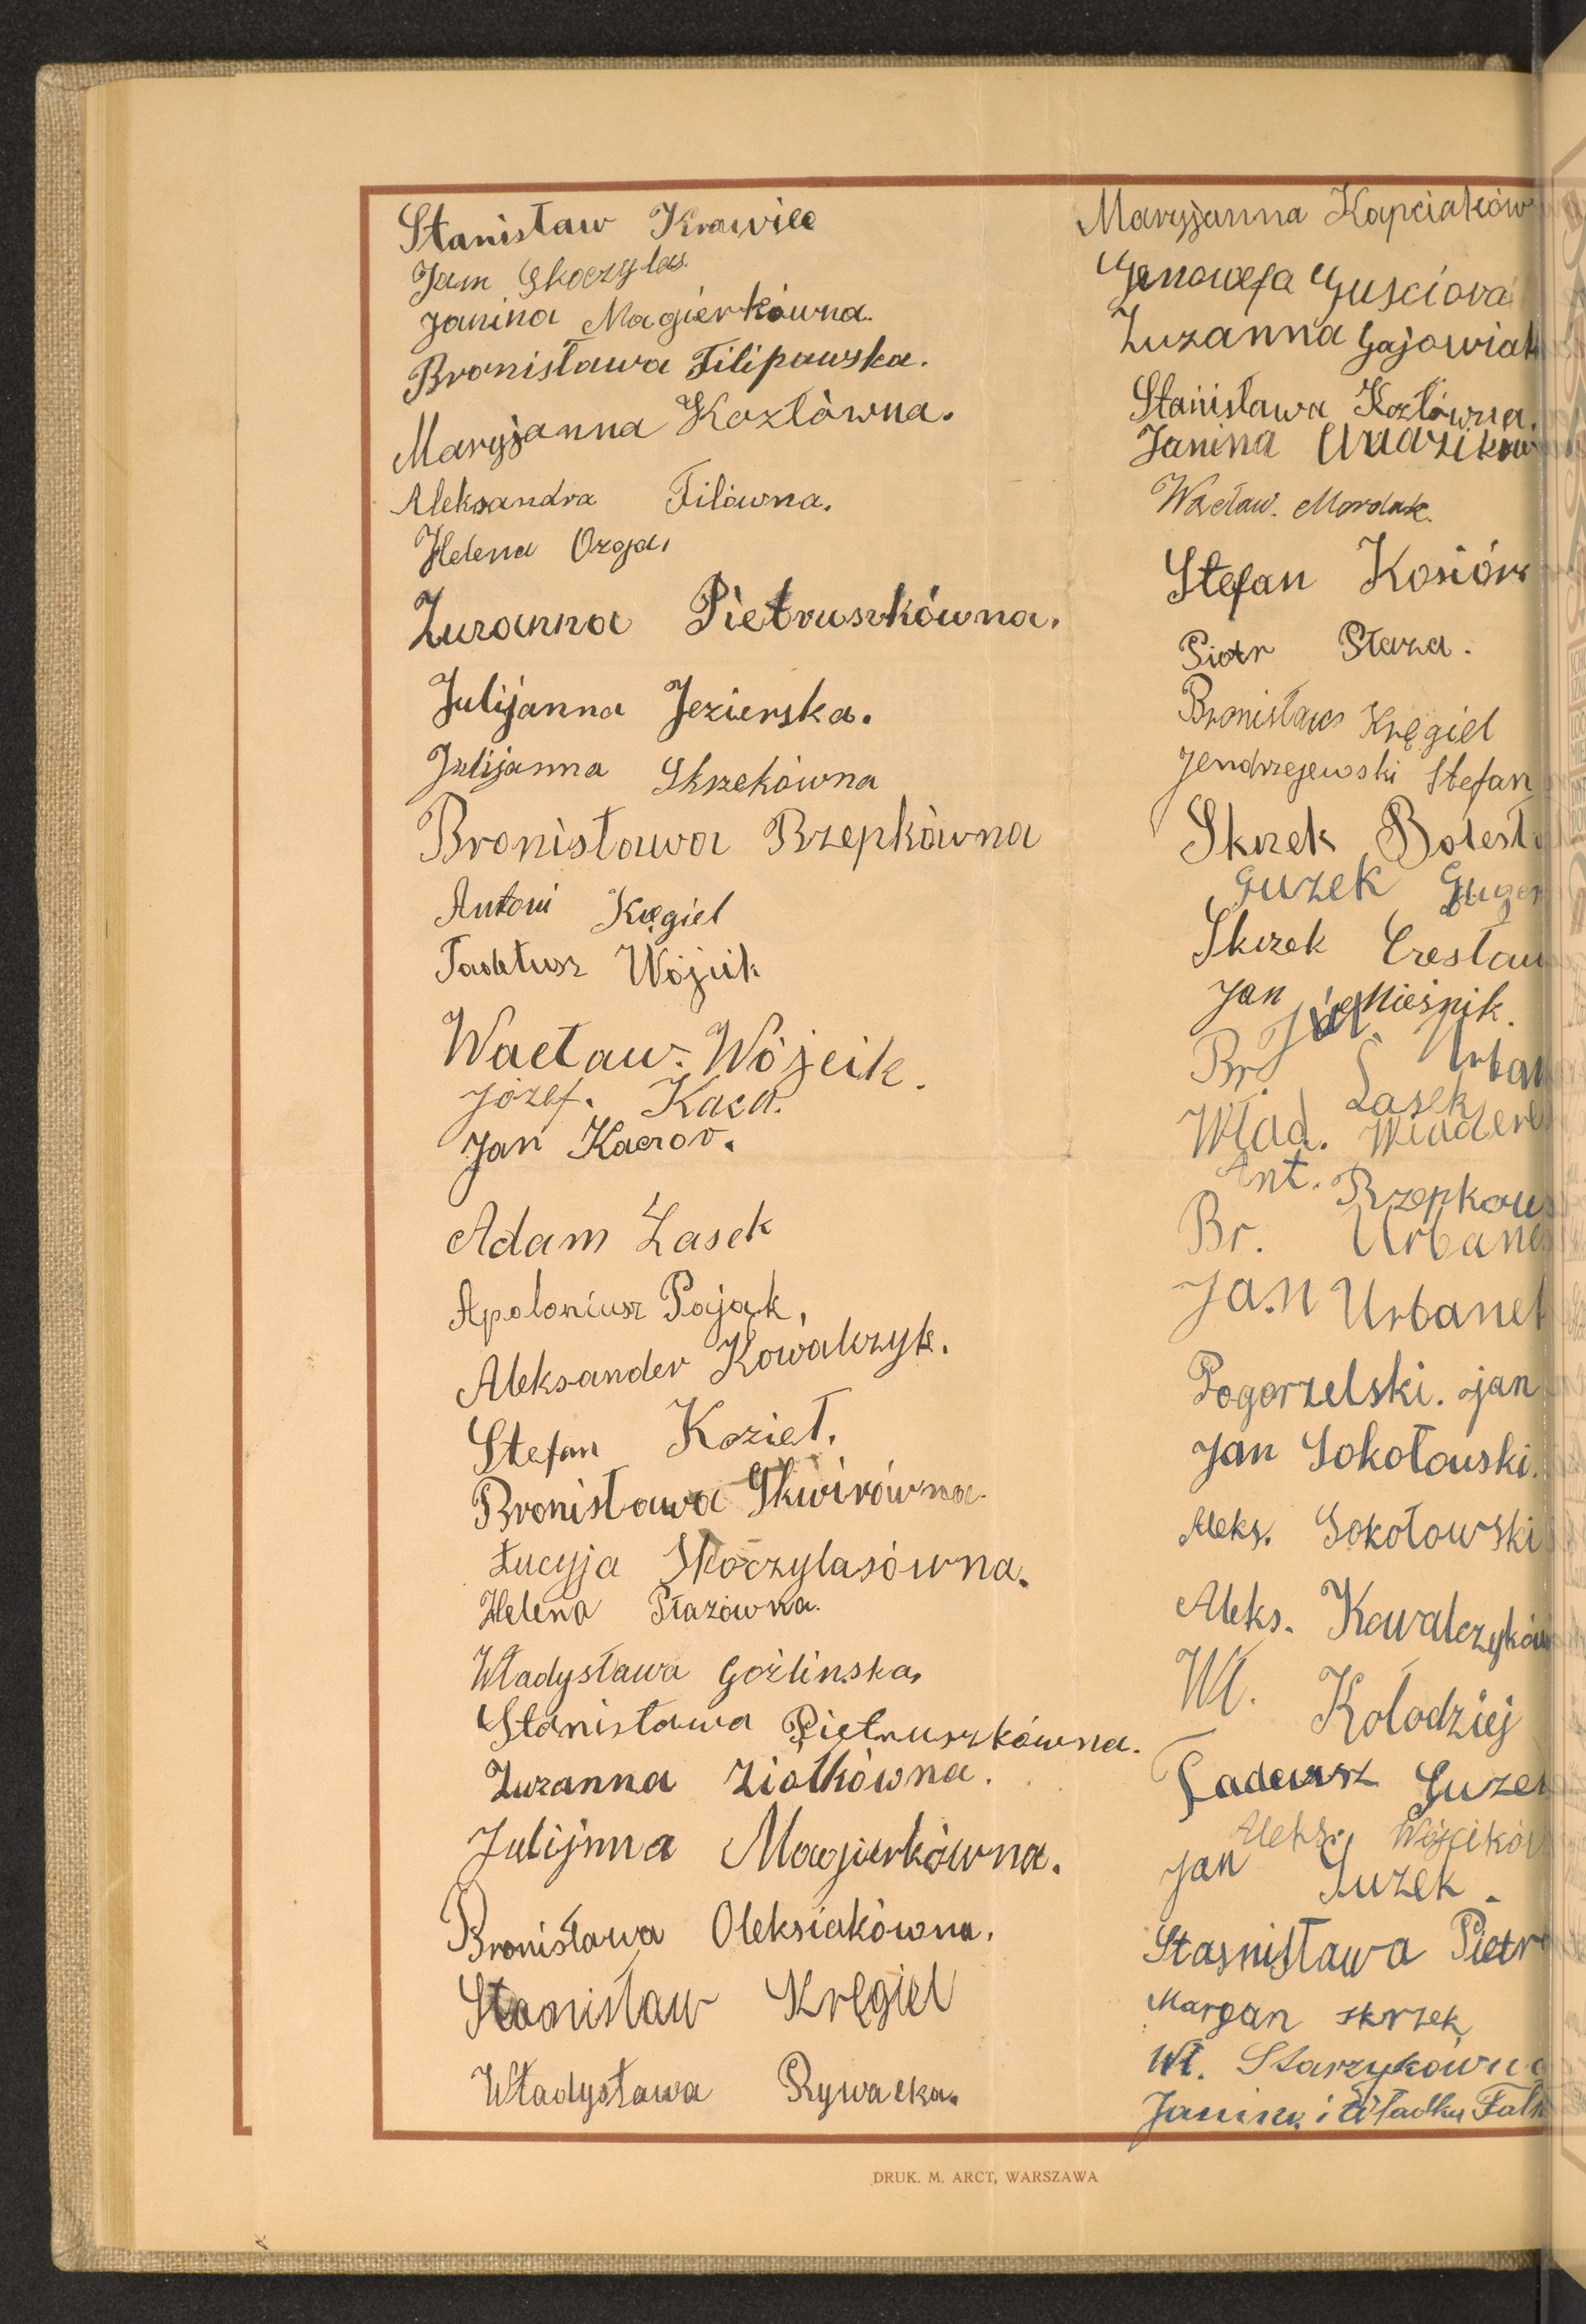 Stanisław Krawiec
Jan Skoczylas
Janina Magierkówna.
Bronisława Filipowska.
Maryjanna Kozłówna.
Aleksandra Filówna.
Helena Ozga,
Zuzanna Pietruszkówna.
Julijanna Jezierska.
Julijanna Skrzekówna
Bronisława Rzepkówna
Antoni Kręgiel
Tadeusz Wójcik
Wacław. Wójcik.
Józef. Kaca.
Jan
Adam Łasek
Apoloniusz Pająk,
Aleksander Kowalczyk.
Stefan Kozieł.
Bronisława Skwirówna.
Łucyja Skoczylasówna.
Helena Płazówna.
Władysława Goźlinska,
Stanisława Pietruszkówna.
Zuzanna Ziółkówna.
Julijnna Magierkówna.
Bronisława Oleksiakówna.
Stanisław Kręgiel
Władysława Rywacka.
Maryjanna Kapciaków
Genowefa Guściora
Zuzanna Gajowiak
Stanisława Kozłówna.
Janina
Wacław. Mordak.
Stefan Kosiór
Piotr Płaza.
Bronisław Kręgiel
Jendrzejewski Stefan
Skrzek Bolesł
Guzek
Skrzek Czesław
Jan Mieśnik.
Józ. Urban
Br. Łasek
Wład. Wiadere
Ant. Rzepkows
Br. Urbane
Jan Urbanek
Pogorzelski. jan
Jan Sokołowski.
Aleks. Sokołowski
Aleks. Kowalczyków
Wł. Kołodziej
Tadeusz Guzek
Aleks. Wójcików
Jan Guzek.
Stasnisława Pietr
Marjan skrzek
Wł. Starzykówna
Janina i Władka Falk
DRUK. M. ARCT, WARSZAWA